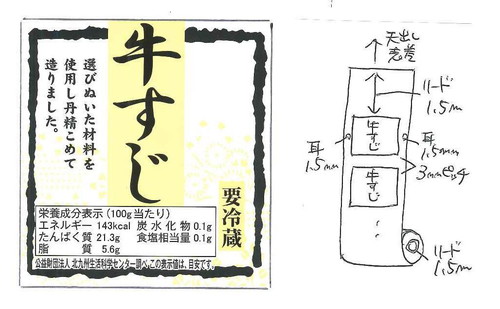 牛すじ
選びぬいた材料を
使用し丹精こめて
造りました。
要冷蔵
栄養成分表示(100g当たり)
エネルギー 143kcal 炭水化物 0.1g
たんぱく質 21.3g 食塩相当量 0.1g
脂質 5.6g
公益財団法人 北九州生活科学センター調べ。この表示値は、目安です。
天出し
表巻
リード
1.5m
牛すじ
耳
1.5mm
耳
1.5mm
3mmピッチ
牛すじ
リード
1.5m